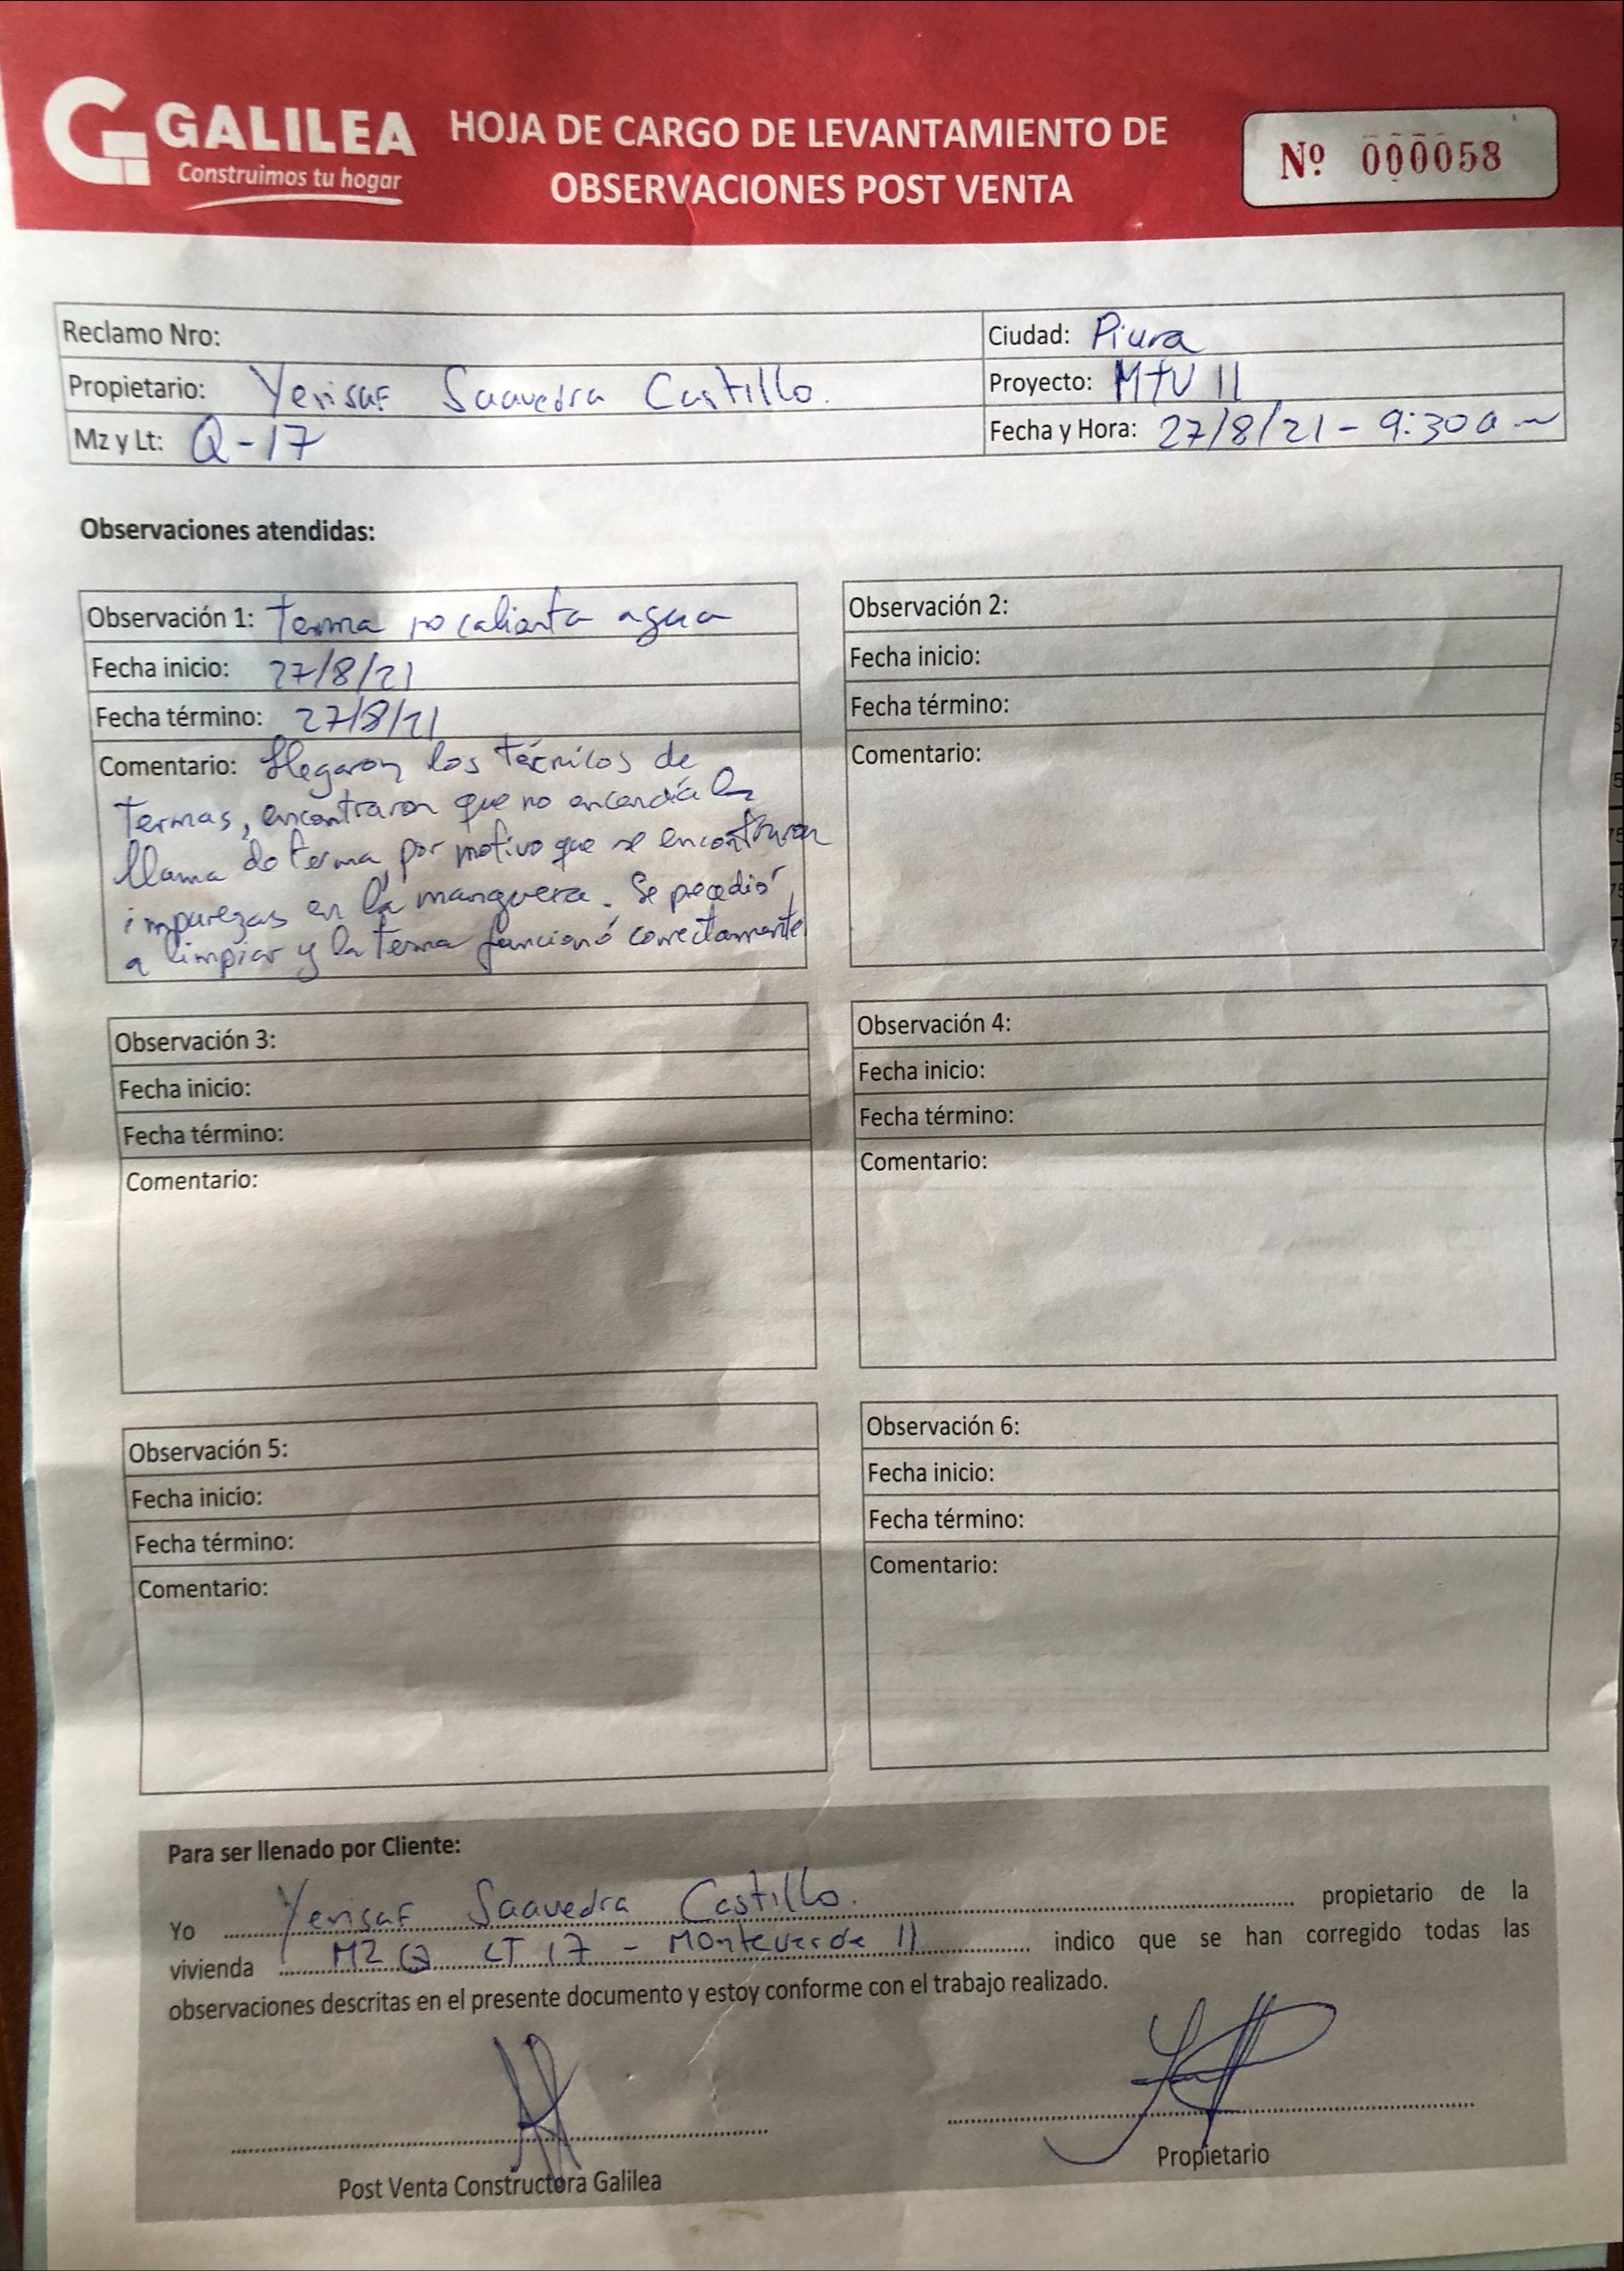 GALILEA
Construimos tu hogar
HOJA DE CARGO DE LEVANTAMIENTO DE
OBSERVACIONES POST VENTA
Nº 000058
Reclamo Nro:
Ciudad: Piura
Propietario: Yerisaf Saavedra Castillo.
Proyecto: MTV II
Mz y Lt: Q-17
Fecha y Hora: 27/8/21 - 9:30 am
Observaciones atendidas:
Observación 1: terma no calienta agua
Fecha inicio: 27/8/21
Fecha término: 27/8/21
Comentario: Llegaron los técnicos de
termas, encontraron que no encendía la
llama de terma, por motivo que se encontraron
impurezas en la manguera. Se procedió
a limpiar y la terma funcionó correctamente
Observación 2:
Fecha inicio:
Fecha término:
Comentario:
Observación 3:
Fecha inicio:
Fecha término:
Comentario:
Observación 4:
Fecha inicio:
Fecha término:
Comentario:
Observación 5:
Fecha inicio:
Fecha término:
Comentario:
Observación 6:
Fecha inicio:
Fecha término:
Comentario:
Para ser llenado por Cliente:
Yo Yerisaf Saavedra Castillo. propietario de la
vivienda MZ Q LT 17 - Monteverde II indico que se han corregido todas las
observaciones descritas en el presente documento y estoy conforme con el trabajo realizado.
Post Venta Constructora Galilea
Propietario